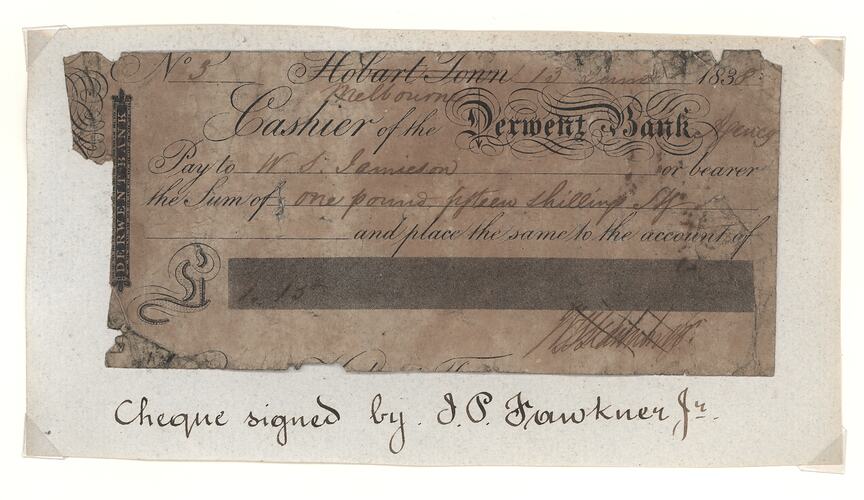 No 3 Hobart Town 13 June 1838
Melbourne
Cashier of the Derwent Bank Agency
DERWENT BANK
Pay to W S. Jamieson or bearer
the Sum of one pound fifteen shillings Stg
and place the same to the account of
£ 1. 15
Cheque signed by. J. P. Fawkner Jr.